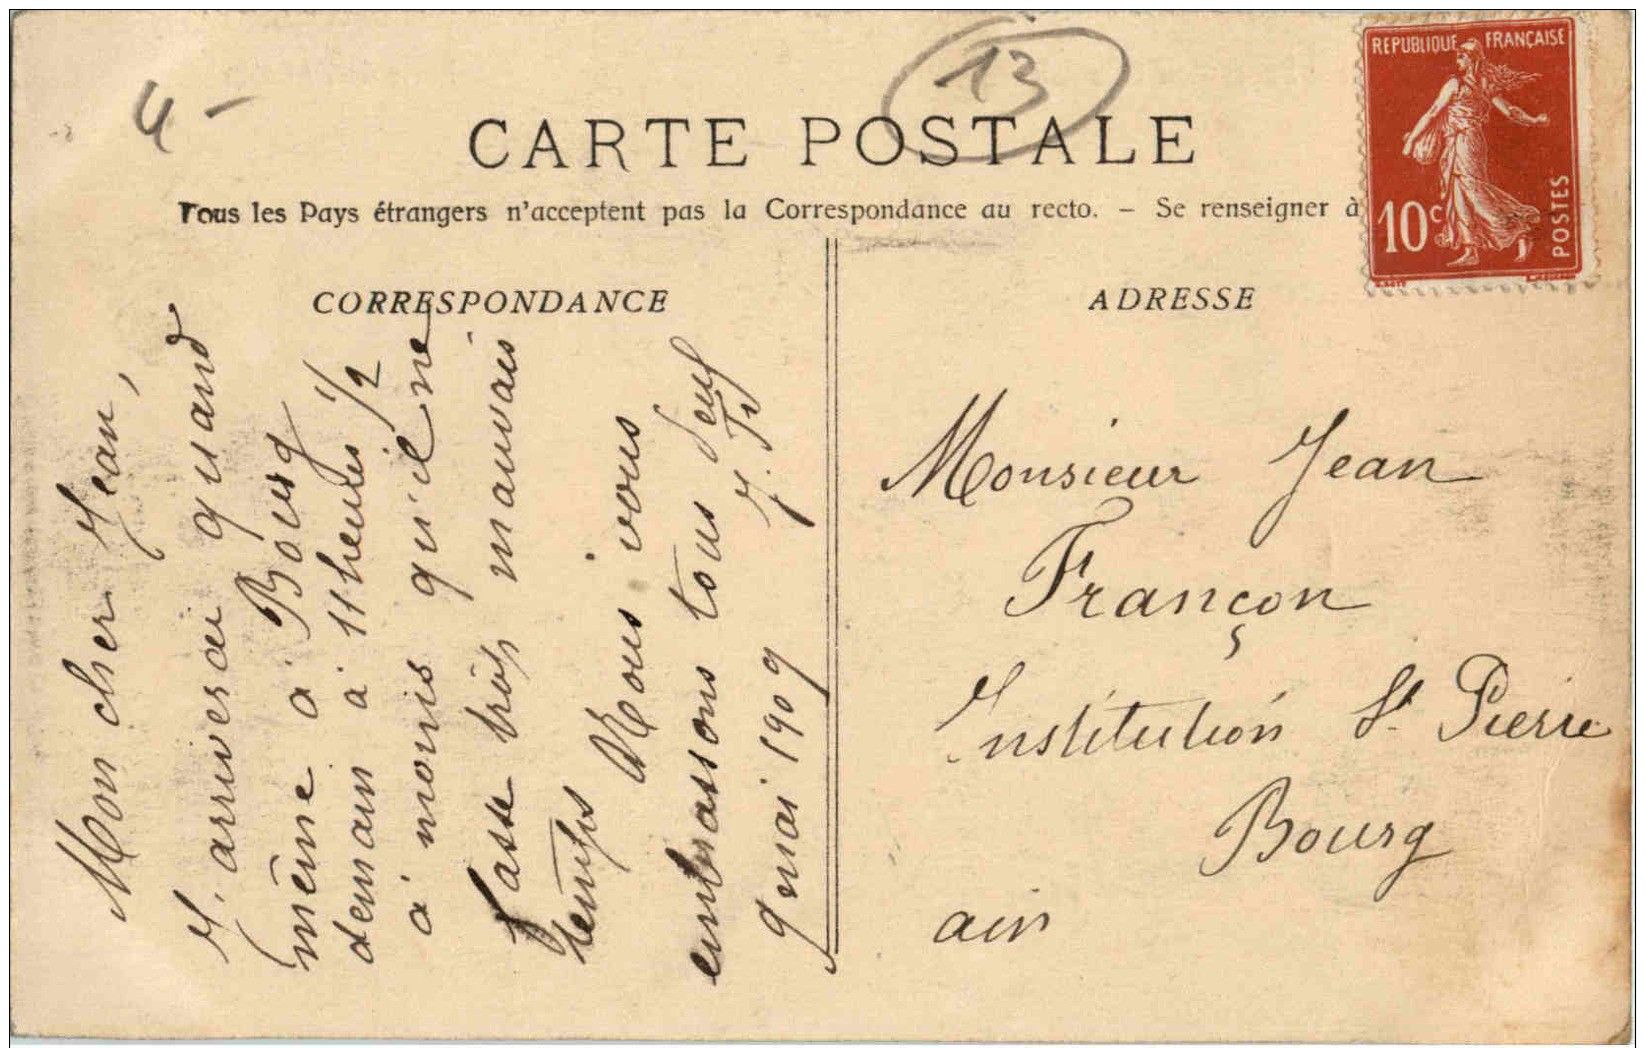 4 -
13
CARTE POSTALE
Tous les Pays étrangers n'acceptent pas la Correspondance au recto. – Se renseigner à
REPUBLIQUE FRANÇAISE
10c
POSTES
CORRESPONDANCE
Mon cher Jean,
J. arriverai quand
même à Bourg
demain à 11 heures 1/2
à moins qu'il ne
fasse trop mauvais
temps Nous vous
embrassons tous
J. F.
9 mai 1909
ADRESSE
Monsieur Jean
Françon
Institution St Pierre
Bourg
ain